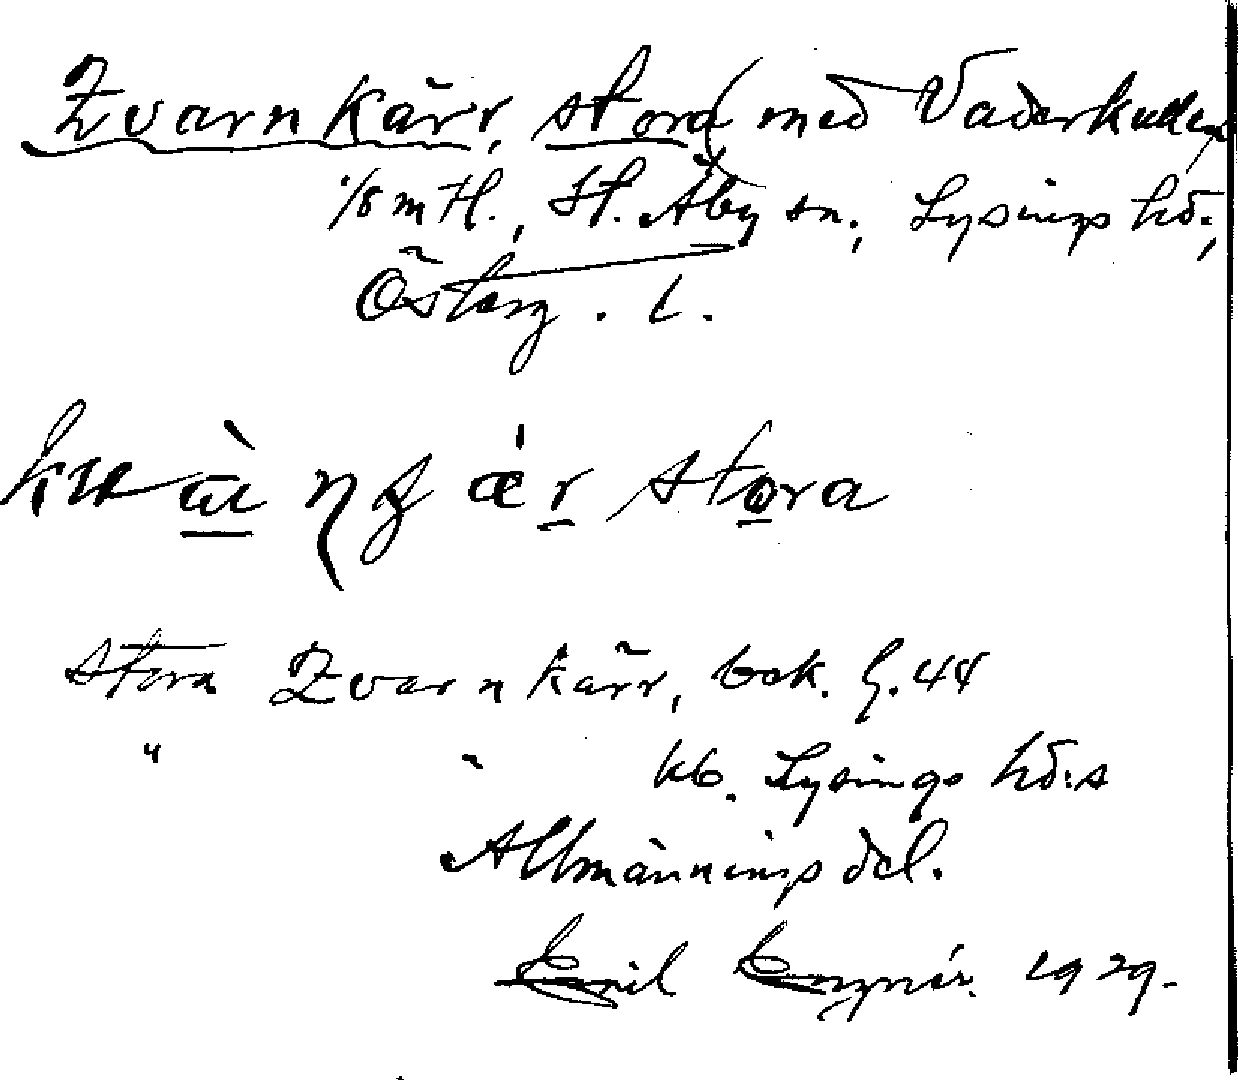 Qvarnkärr, stora (med Vaderkullen)
1/8 mtl., St. Åby sn., Lysings hd.,
Österg. l.
stora
Stora Qvarnkärr, bek. G. 44
" " kb. Lysings hd:s
Allmännings del.
Emil 1929.